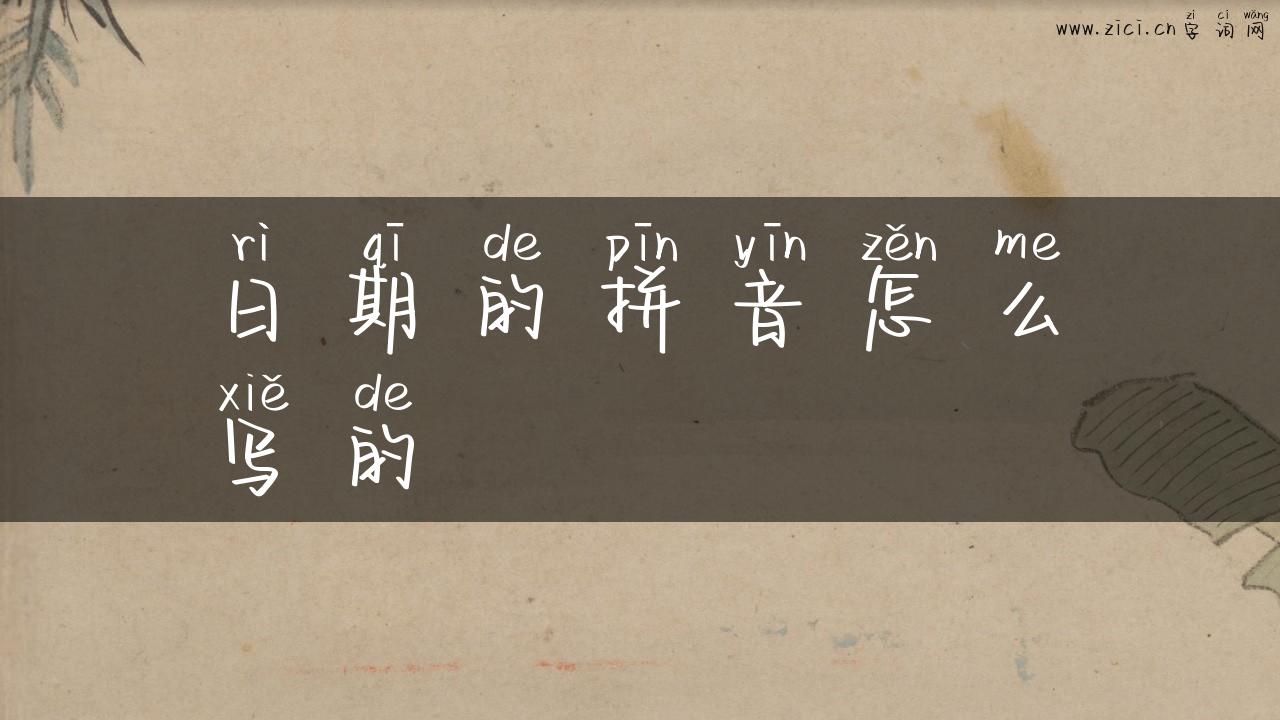 zì cí wǎng
www.zici.cn 字 词 网
rì qī de pīn yīn zěn me
日 期 的 拼 音 怎 么
xiě de
写 的